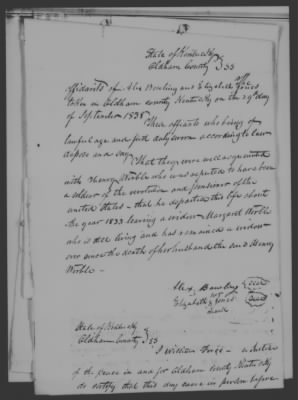 State of Kentucky
Oldham County } SS
Affidavits of Alex Bowling and Elizabeth Jones
taken in Oldham county Kentucky on the 29th day
of September 1838
These affiants who being of
lawful age and first duly sworn according to law
depose and say
That they were well acquainted
with Henry Woble who was reputed to have been
a soldier of the revolution and pensioner of the
United States - that he departed this life about
the year 1833 leaving a widow Margaret Woble
who is still living and has remained a widow
ever since the death of her husband the said Henry
Woble -
Alex Bowling (seal)
Elizabeth Jones (seal)
mark
State of Kentucky
Oldham County } SS
I William - a Justice
of the peace in and for Oldham County Kentucky
do certify that this day came in person before